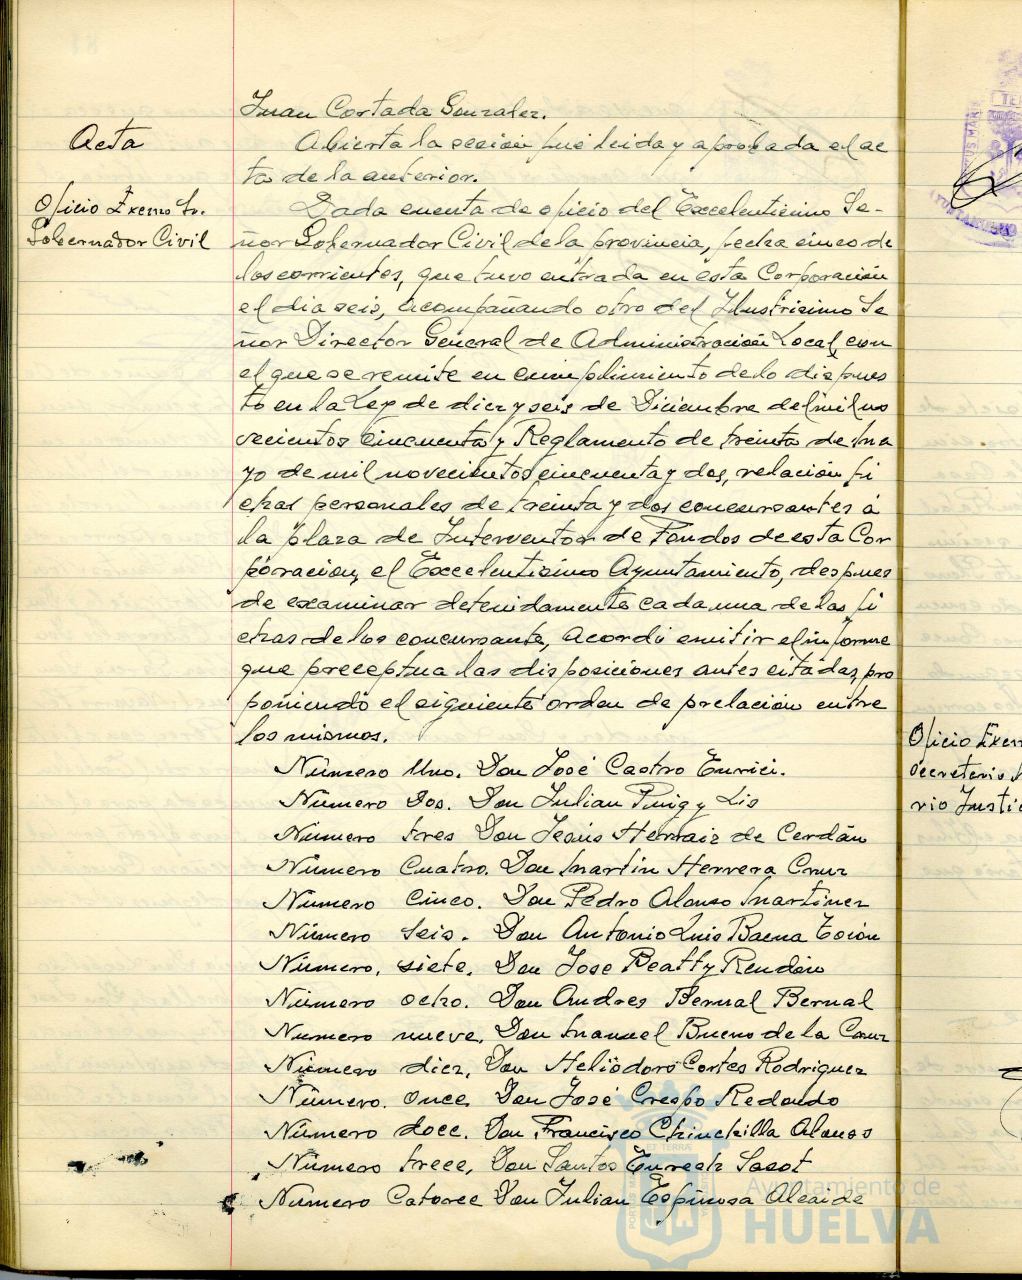 Juan Cortada Gonzalez.
Acta
Abierta la sesión fue leida y aprobada el ac
ta de la anterior.
Oficio Excmo Sr.
Gobernador Civil
Dada cuenta de oficio del Excelentisimo Se-
ñor Gobernador Civil de la provincia, fecha cinco de
los corrientes, que tuvo entrada en esta Corporación
el dia seis, acompañando otro del Ilustrisimo Se
ñor Director General de Administración Local, con
el que se remite en cumplimiento de lo dispues
to en la Ley de diez y seis de Diciembre de mil no
vecientos cincuenta y Reglamento de treinta de Ma
yo de mil novecientos cincuenta y dos, relación fi
chas personales de treinta y dos concursantes á
la plaza de Interventor de Fondos de esta Cor
poración, el Excelentisimo Ayuntamiento, despues
de examinar detenidamente cada una de las fi
chas de los concursante, acordó emitir el informe
que preceptua las disposiciones antes citadas, pro
poniendo el siguiente orden de prelación entre
los mismos.
Número Uno. Don José Castro Enrici.
Número Dos. Don Julian Puig y Lis
Número tres Don Jesús Hernaiz de Cerdán
Número Cuatro. Don Martín Herrera Cruz
Número Cinco. Don Pedro Alonso Martinez
Número Seis. Don Antonio Luis Baena Tosión
Número, siete. Don Jose Beatty Rendón
Número ocho. Don Andres Bernal Bernal
Numero nueve, Don Manuel Bueno de la Cruz
Número diez, Don Heliodoro Cortes Rodriguez
Número. once Don José Crespo Redondo
Número doce. Don Francisco Chinchilla Alonso
Número trece, Don Santos Enrech Sasot
Número Catorce Don Julian Espinosa Alcaide
Oficio Exem
Secretario
rio Justic
Ayuntamiento de
HUELVA